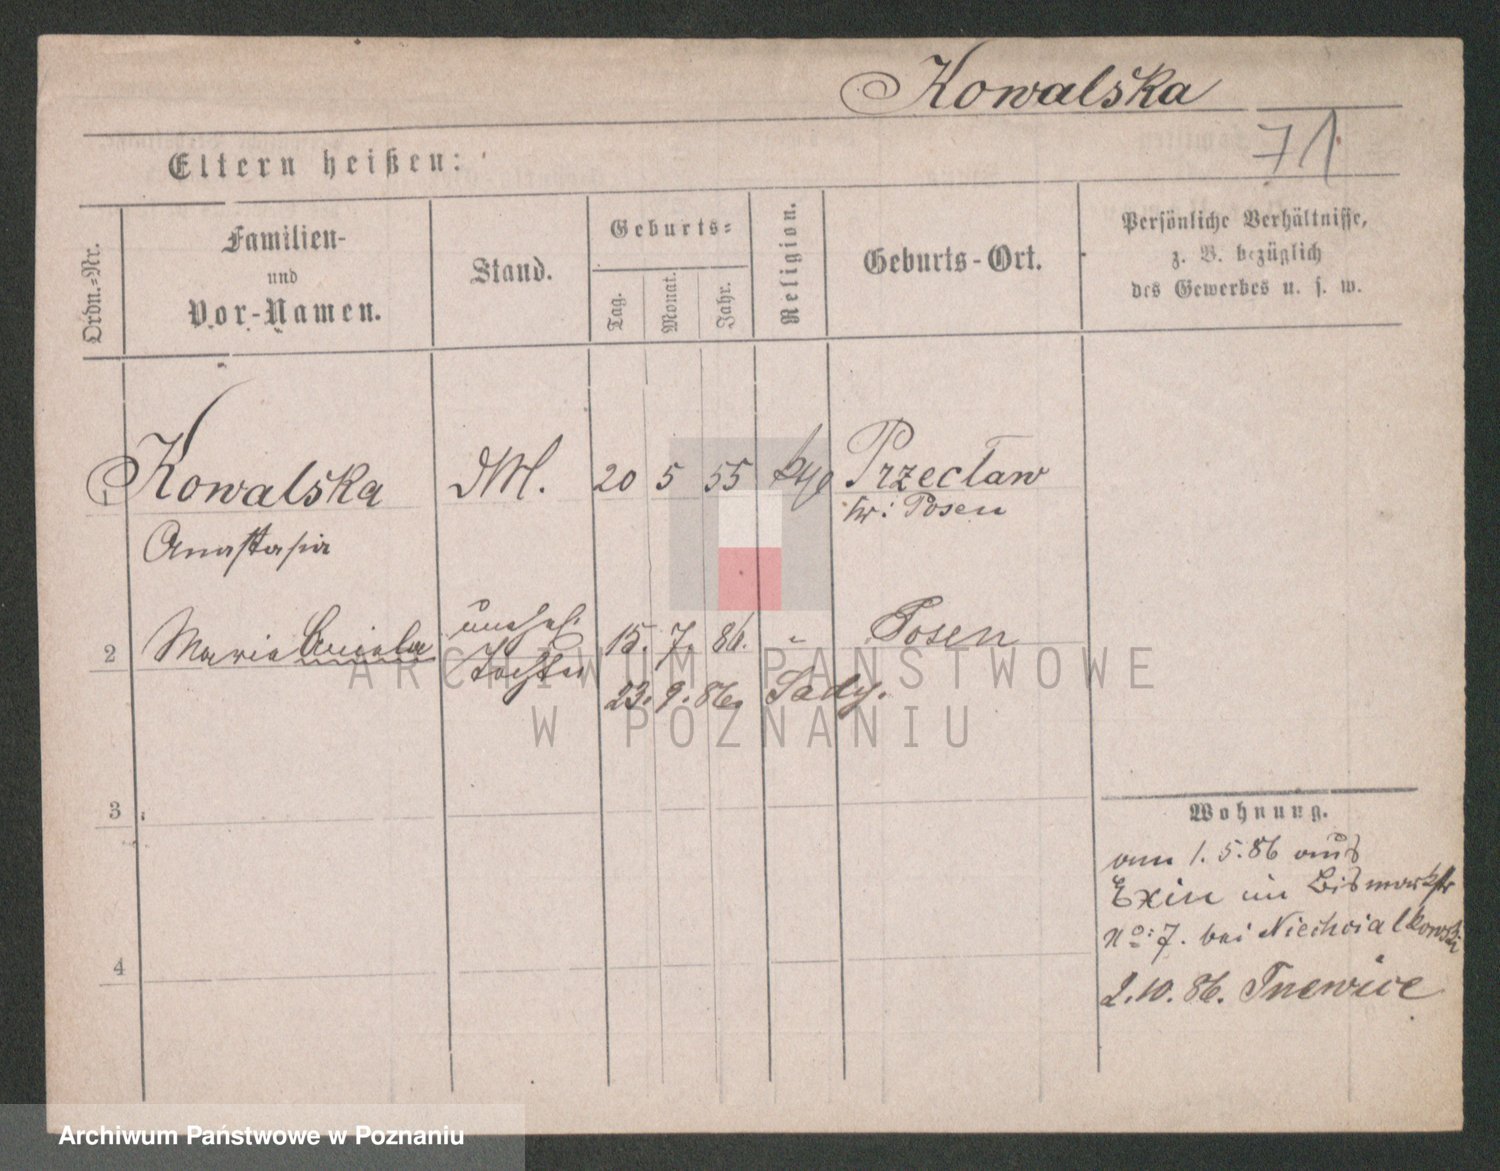 Kowalska
71
Eltern heißen:
Ordn.-Nr.
Familien-
und
Vor-Namen.
Stand.
Geburts-
Tag.
Monat.
Jahr.
Religion.
Geburts-Ort.
Persönliche Verhältnisse,
z. B. bezüglich
des Gewerbes u. s. w.
1 Kowalska DM. 20 5 55 Przecław
Kr: Posen
Anastasia
unehel.
2 Maria Aniela Tochter 15. 7. 86. " Posen
23. 9. 86. Sady.
3
4
Wohnung.
vom 1. 5. 86 aus
Exin in Bismarkstr
No: 7. bei Niechcialkowski
2. 10. 86.
ARCHIWUM PAŃSTWOWE
W POZNANIU
Archiwum Państwowe w Poznaniu